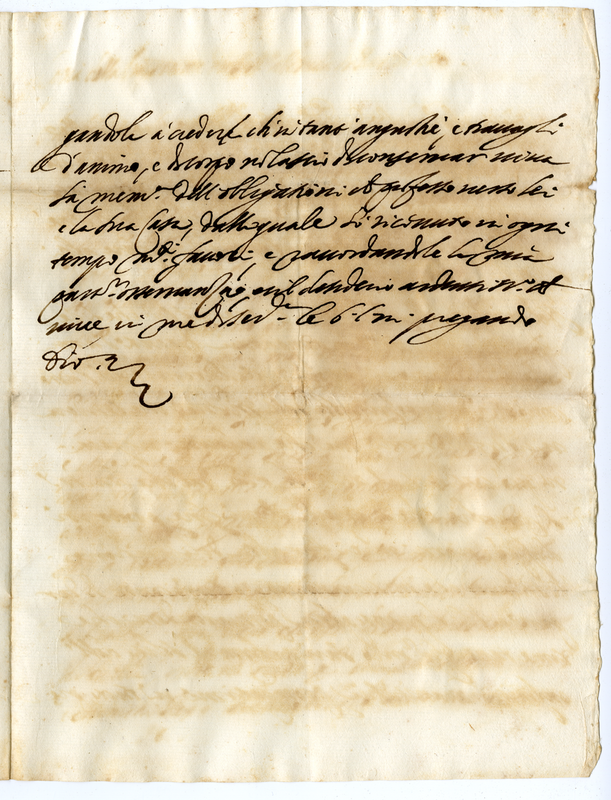 gandole à credere ch'in tante angustie, e travagli
d'animo, e di corpo non lascio di conservar viva
la mem.a dell'obligationi et affetto verso lei
e la sua Casa, dalla quale hò ricevuto in ogni
tempo favori, e raccordandole la mia
part.re osservanza, e il desiderio
vive in me di le b. l. m. pregando
Dio.